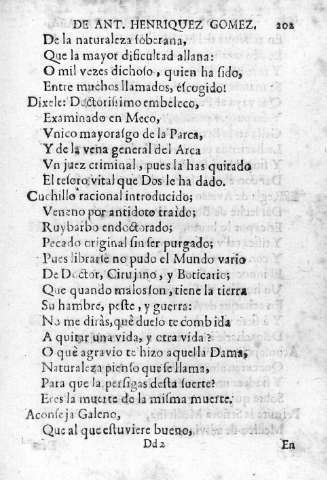 DE ANT. HENRIQUEZ GOMEZ. 202
De la naturaleza soberana,
Que la mayor dificultad allana:
O mil vezes dichoso, quien ha sido,
Entre muchos llamados, escogido!
Dixele: Doctorissimo embeleco,
Examinado en Meco,
Vnico mayorasgo de la Parca,
Y de la vena general del Arca
Vn juez criminal, pues la has quitado
El tesoro vital que Dos le ha dado.
Cuchillo racional introducido;
Veneno por antidoto traìdo;
Ruybarbo endoctorado;
Pecado original sin ser purgado;
Pues librarse no pudo el Mundo vario
De Doctor, Cirujano, y Boticario;
Que quando malos son, tiene la tierra
Su hambre, peste, y guerra:
No me diràs, què duelo te combida
A quitar una vida, y otra vida?
O què agravio te hizo aquella Dama,
Naturaleza pienso que se llama,
Para que la persigas desta suerte?
Eres la muerte de la misma muerte.
Aconseja Galeno,
Que al que estuviere bueno,
Dd 2 En